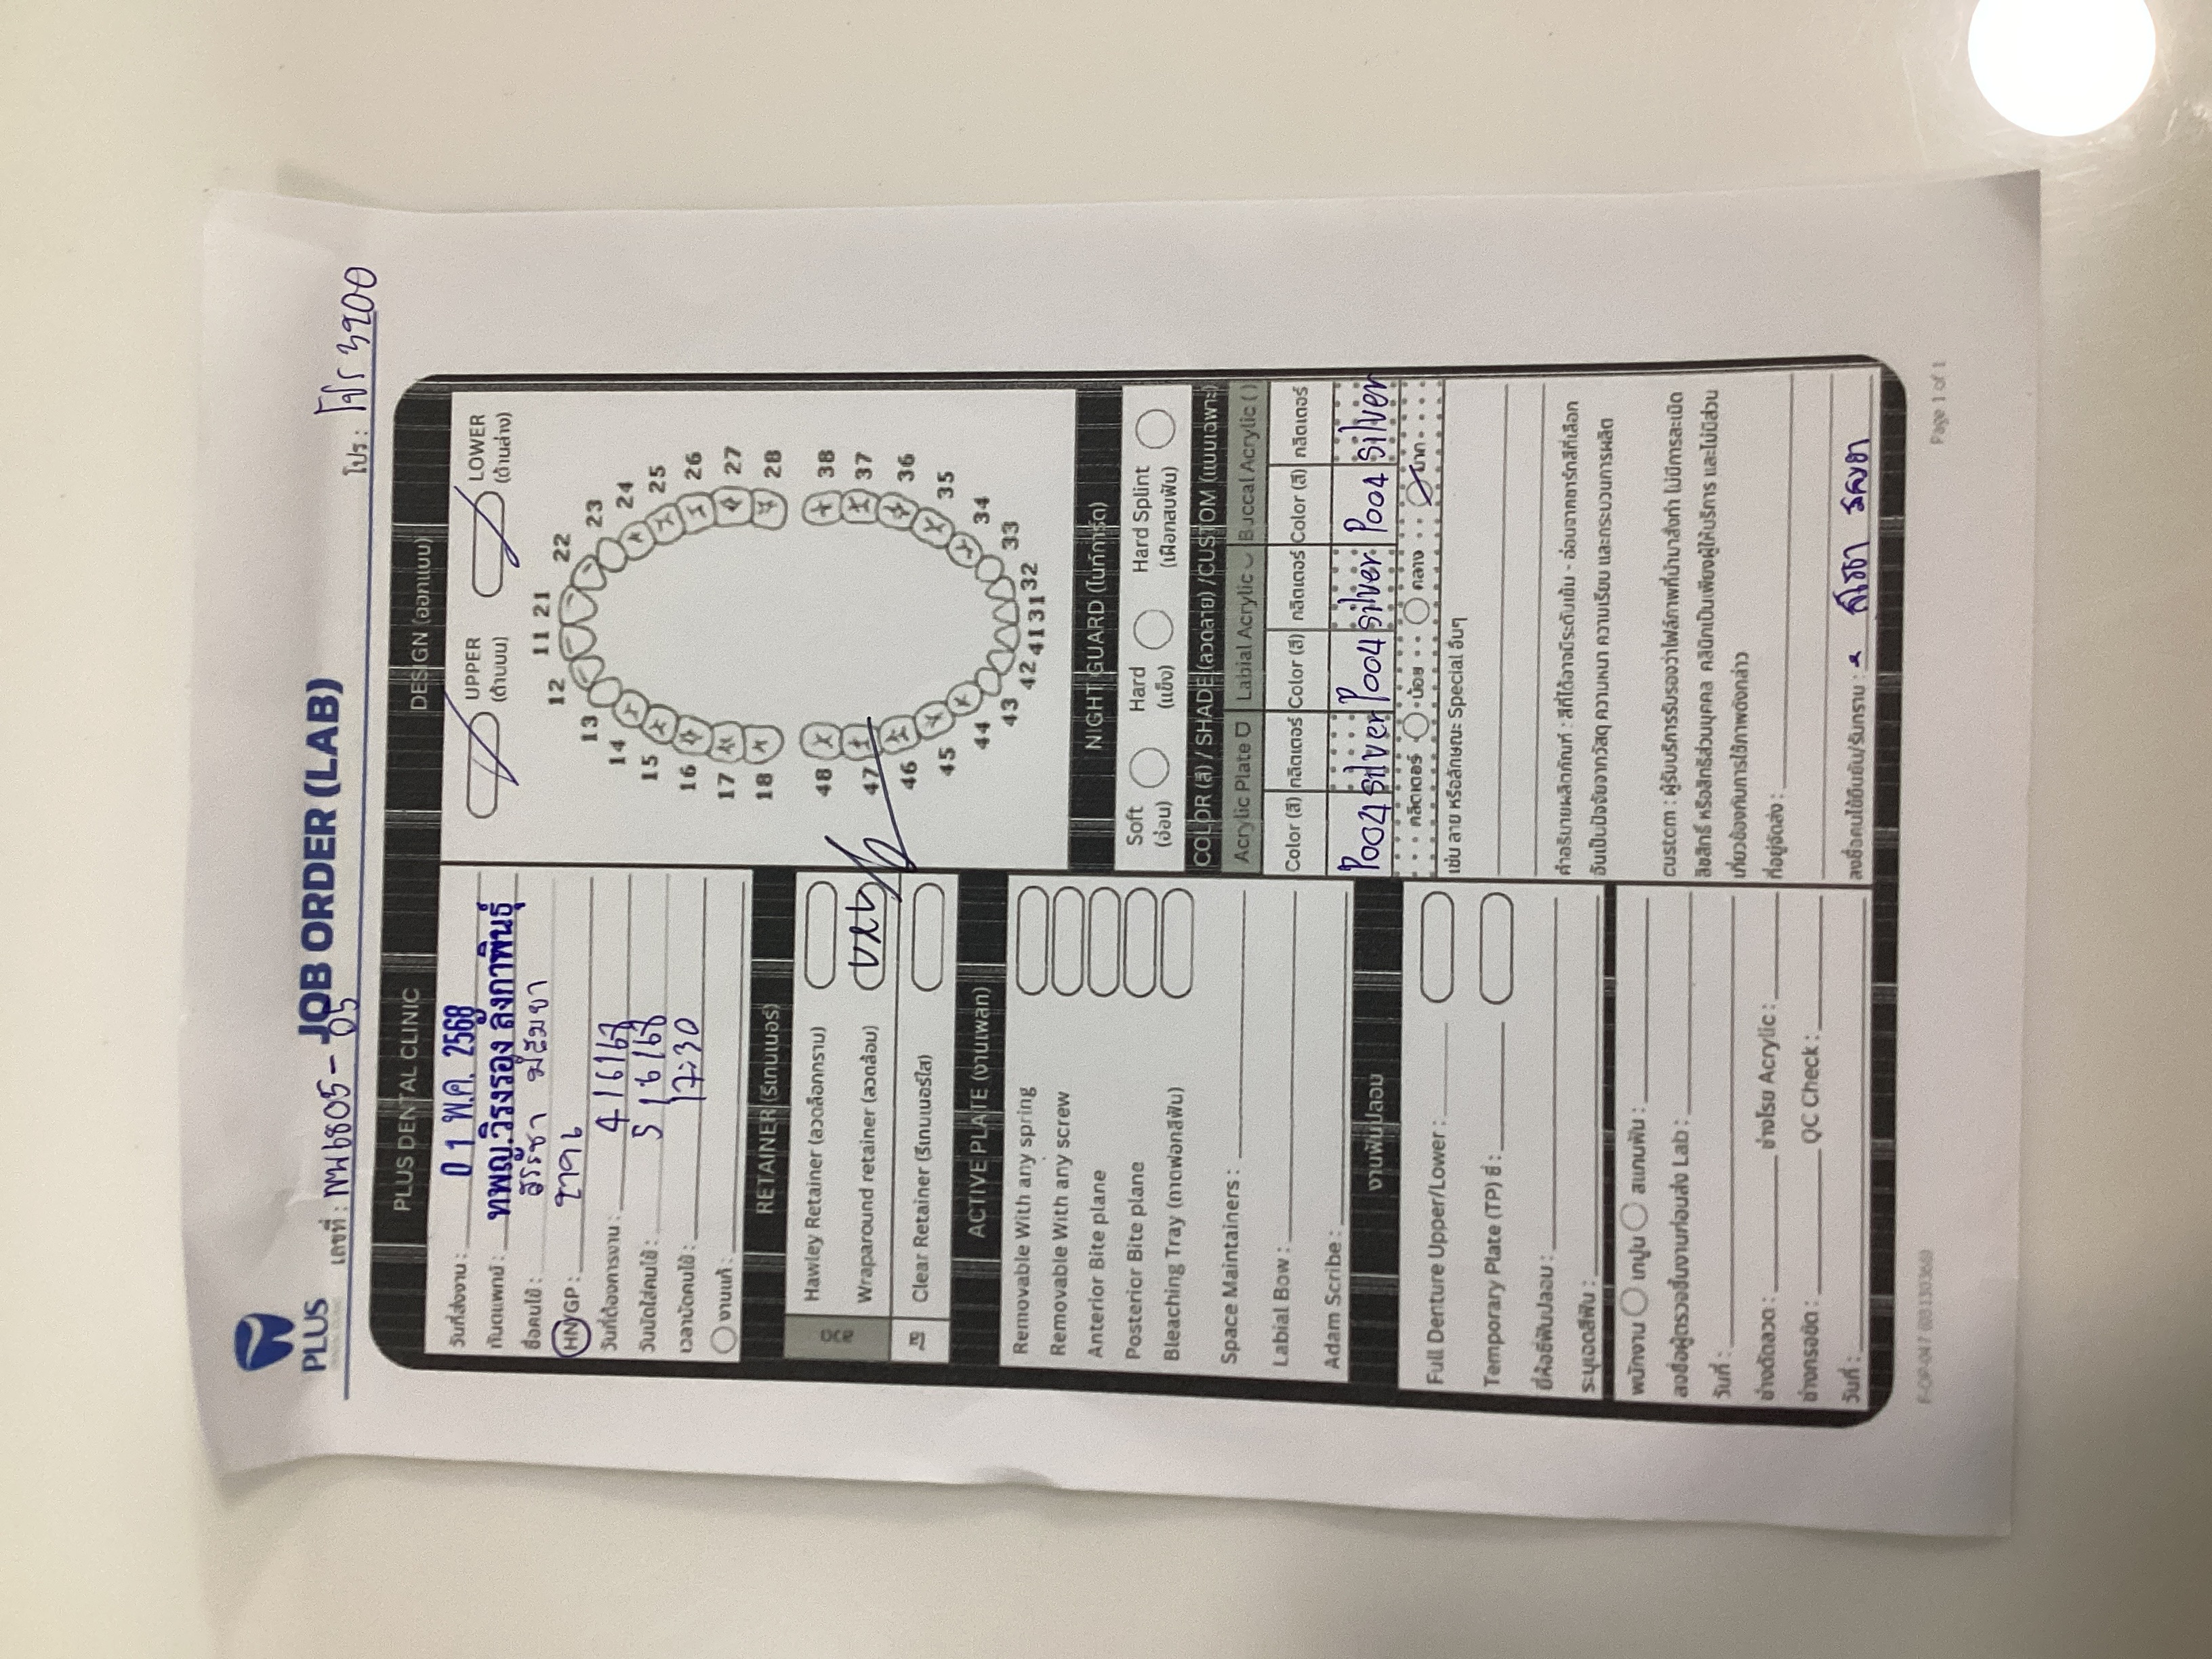 PLUS
JOB ORDER (LAB)
เลขที่ : 6805-05
โปร : โปร 3900
PLUS DENTAL CLINIC
วันที่ส่งงาน : 01 พ.ค. 2568
ทันตแพทย์ : ทพญ.วิรงรอง ลังกาพินธุ์
ชื่อคนไข้ :
HN/GP :
วันที่ต้องการงาน : 4/6/68
วันนัดใส่คนไข้ : 5/6/68
เวลานัดคนไข้ : 17:30
งานแก้ :
RETAINER (รีเทนเนอร์)
ลวด
Hawley Retainer (ลวดล็อกกราม)
Wraparound retainer (ลวดล้อม) บนล่าง
ใส
Clear Retainer (รีเทนเนอร์ใส)
ACTIVE PLATE (งานเพลท)
Removable With any spring
Removable With any screw
Anterior Bite plane
Posterior Bite plane
Bleaching Tray (ถาดฟอกสีฟัน)
Space Maintainers :
Labial Bow :
Adam Scribe :
งานฟันปลอม
Full Denture Upper/Lower :
Temporary Plate (TP) ซี่ :
ยี่ห้อซี่ฟันปลอม :
ระบุเฉดสีฟัน :
พนักงาน เทปูน สแกนฟัน :
ลงชื่อผู้ตรวจชิ้นงานก่อนส่ง Lab :
วันที่ :
ช่างดัดลวด : ช่างโรย Acrylic :
ช่างกรอขัด : QC Check :
วันที่ :
DESIGN (ออกแบบ)
UPPER (ด้านบน) LOWER (ด้านล่าง)
11 21
12 22
13 23
14 24
15 25
16 26
17 27
18 28
48 38
47 37
46 36
45 35
44 34
43 33
42 41 31 32
NIGHT GUARD (ไนท์การ์ด)
Soft (อ่อน) Hard (แข็ง) Hard Splint (เฝือกสบฟัน)
COLOR (สี) / SHADE (ลวดลาย) /CUSTOM (แบบเฉพาะ)
Acrylic Plate Labial Acrylic Buccal Acrylic ( )
Color (สี) กลิตเตอร์ Color (สี) กลิตเตอร์ Color (สี) กลิตเตอร์
P004 silver P004 silver P004 silver
กลิตเตอร์ น้อย กลาง มาก
เช่น ลาย หรือลักษณะ Special อื่นๆ
คำอธิบายผลิตภัณฑ์ : สีที่ได้อาจมีระดับเข้ม - อ่อนจากชาร์ทสีที่เลือก
อันเป็นปัจจัยจากวัสดุ ความหนา ความเรียบ และกระบวนการผลิต
custom : ผู้รับบริการรับรองว่าไฟล์ภาพที่นำมาสั่งทำ ไม่มีการละเมิด
ลิขสิทธิ์ หรือสิทธิส่วนบุคคล คลินิกเป็นเพียงผู้ให้บริการ และไม่มีส่วน
เกี่ยวข้องกับการใช้ภาพดังกล่าว
ที่อยู่จัดส่ง :
ลงชื่อคนไข้ยืนยัน/รับทราบ :
F-OP-047 (08130366)
Page 1 of 1